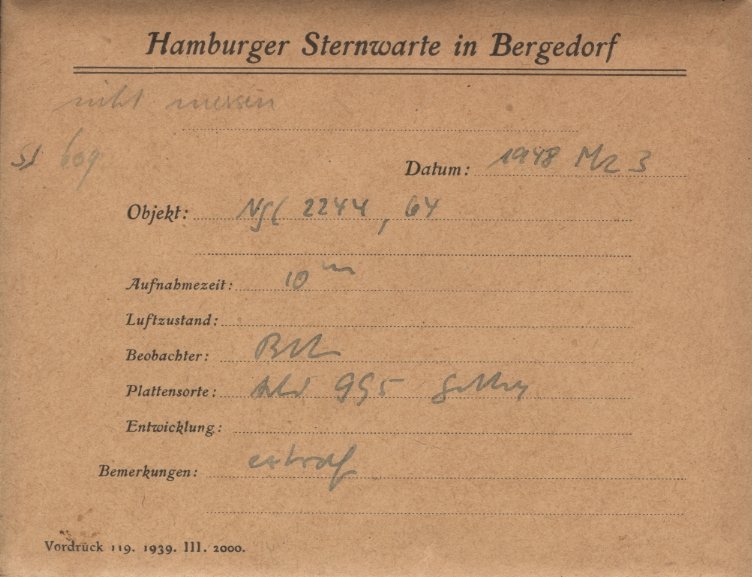 Hamburger Sternwarte in Bergedorf
nicht messen
609
Datum: 1948 Mz 3
Objekt: NGC 2244, 64
Aufnahmezeit: 10 m
Luftzustand:
Beobachter:
Plattensorte: 995
Entwicklung:
Bemerkungen:
Vordruck 119. 1939. III. 2000.